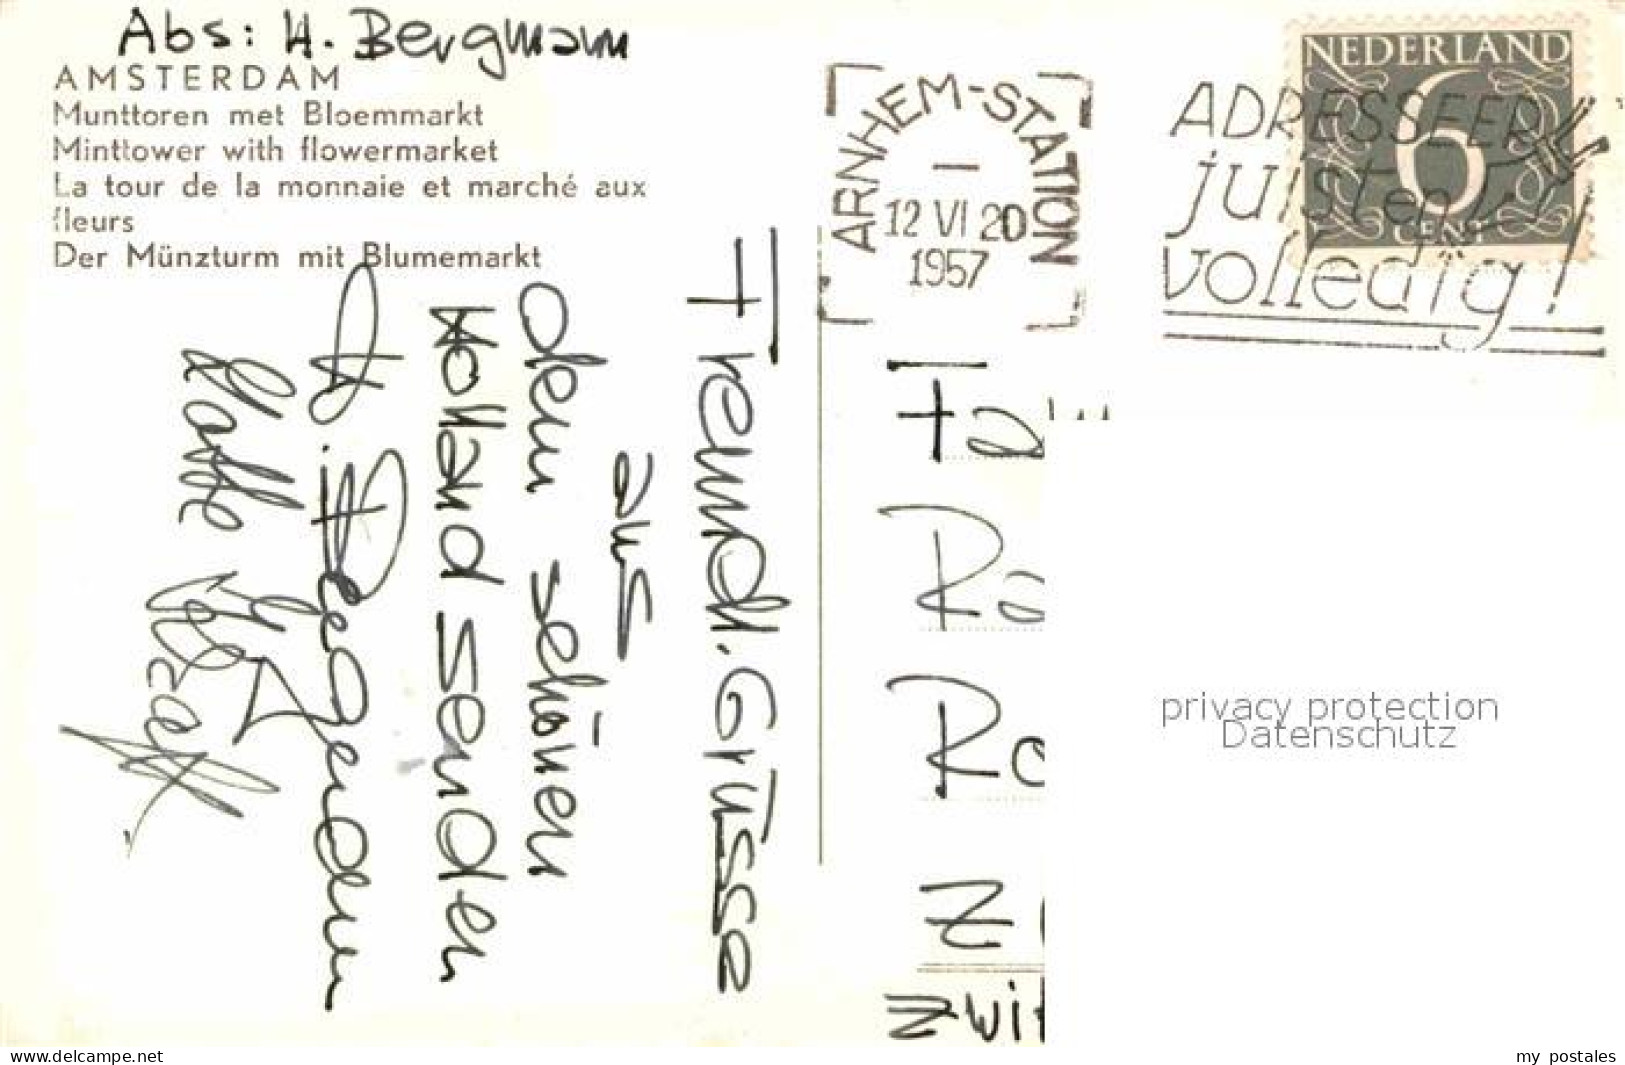 Abs: H. Bergmann
AMSTERDAM
Munttoren met Bloemmarkt
Minttower with flowermarket
La tour de la monnaie et marché aux
fleurs
Der Münzturm mit Blumemarkt
Freundl. Grüsse
aus
dem schönen
Holland senden
H. Bergmann
ARNHEM-STATION
12 VI 20
1957
ADRESSEER
juist en
volledig!
NEDERLAND
6
CENT
privacy protection
Datenschutz
www.delcampe.net
my postales